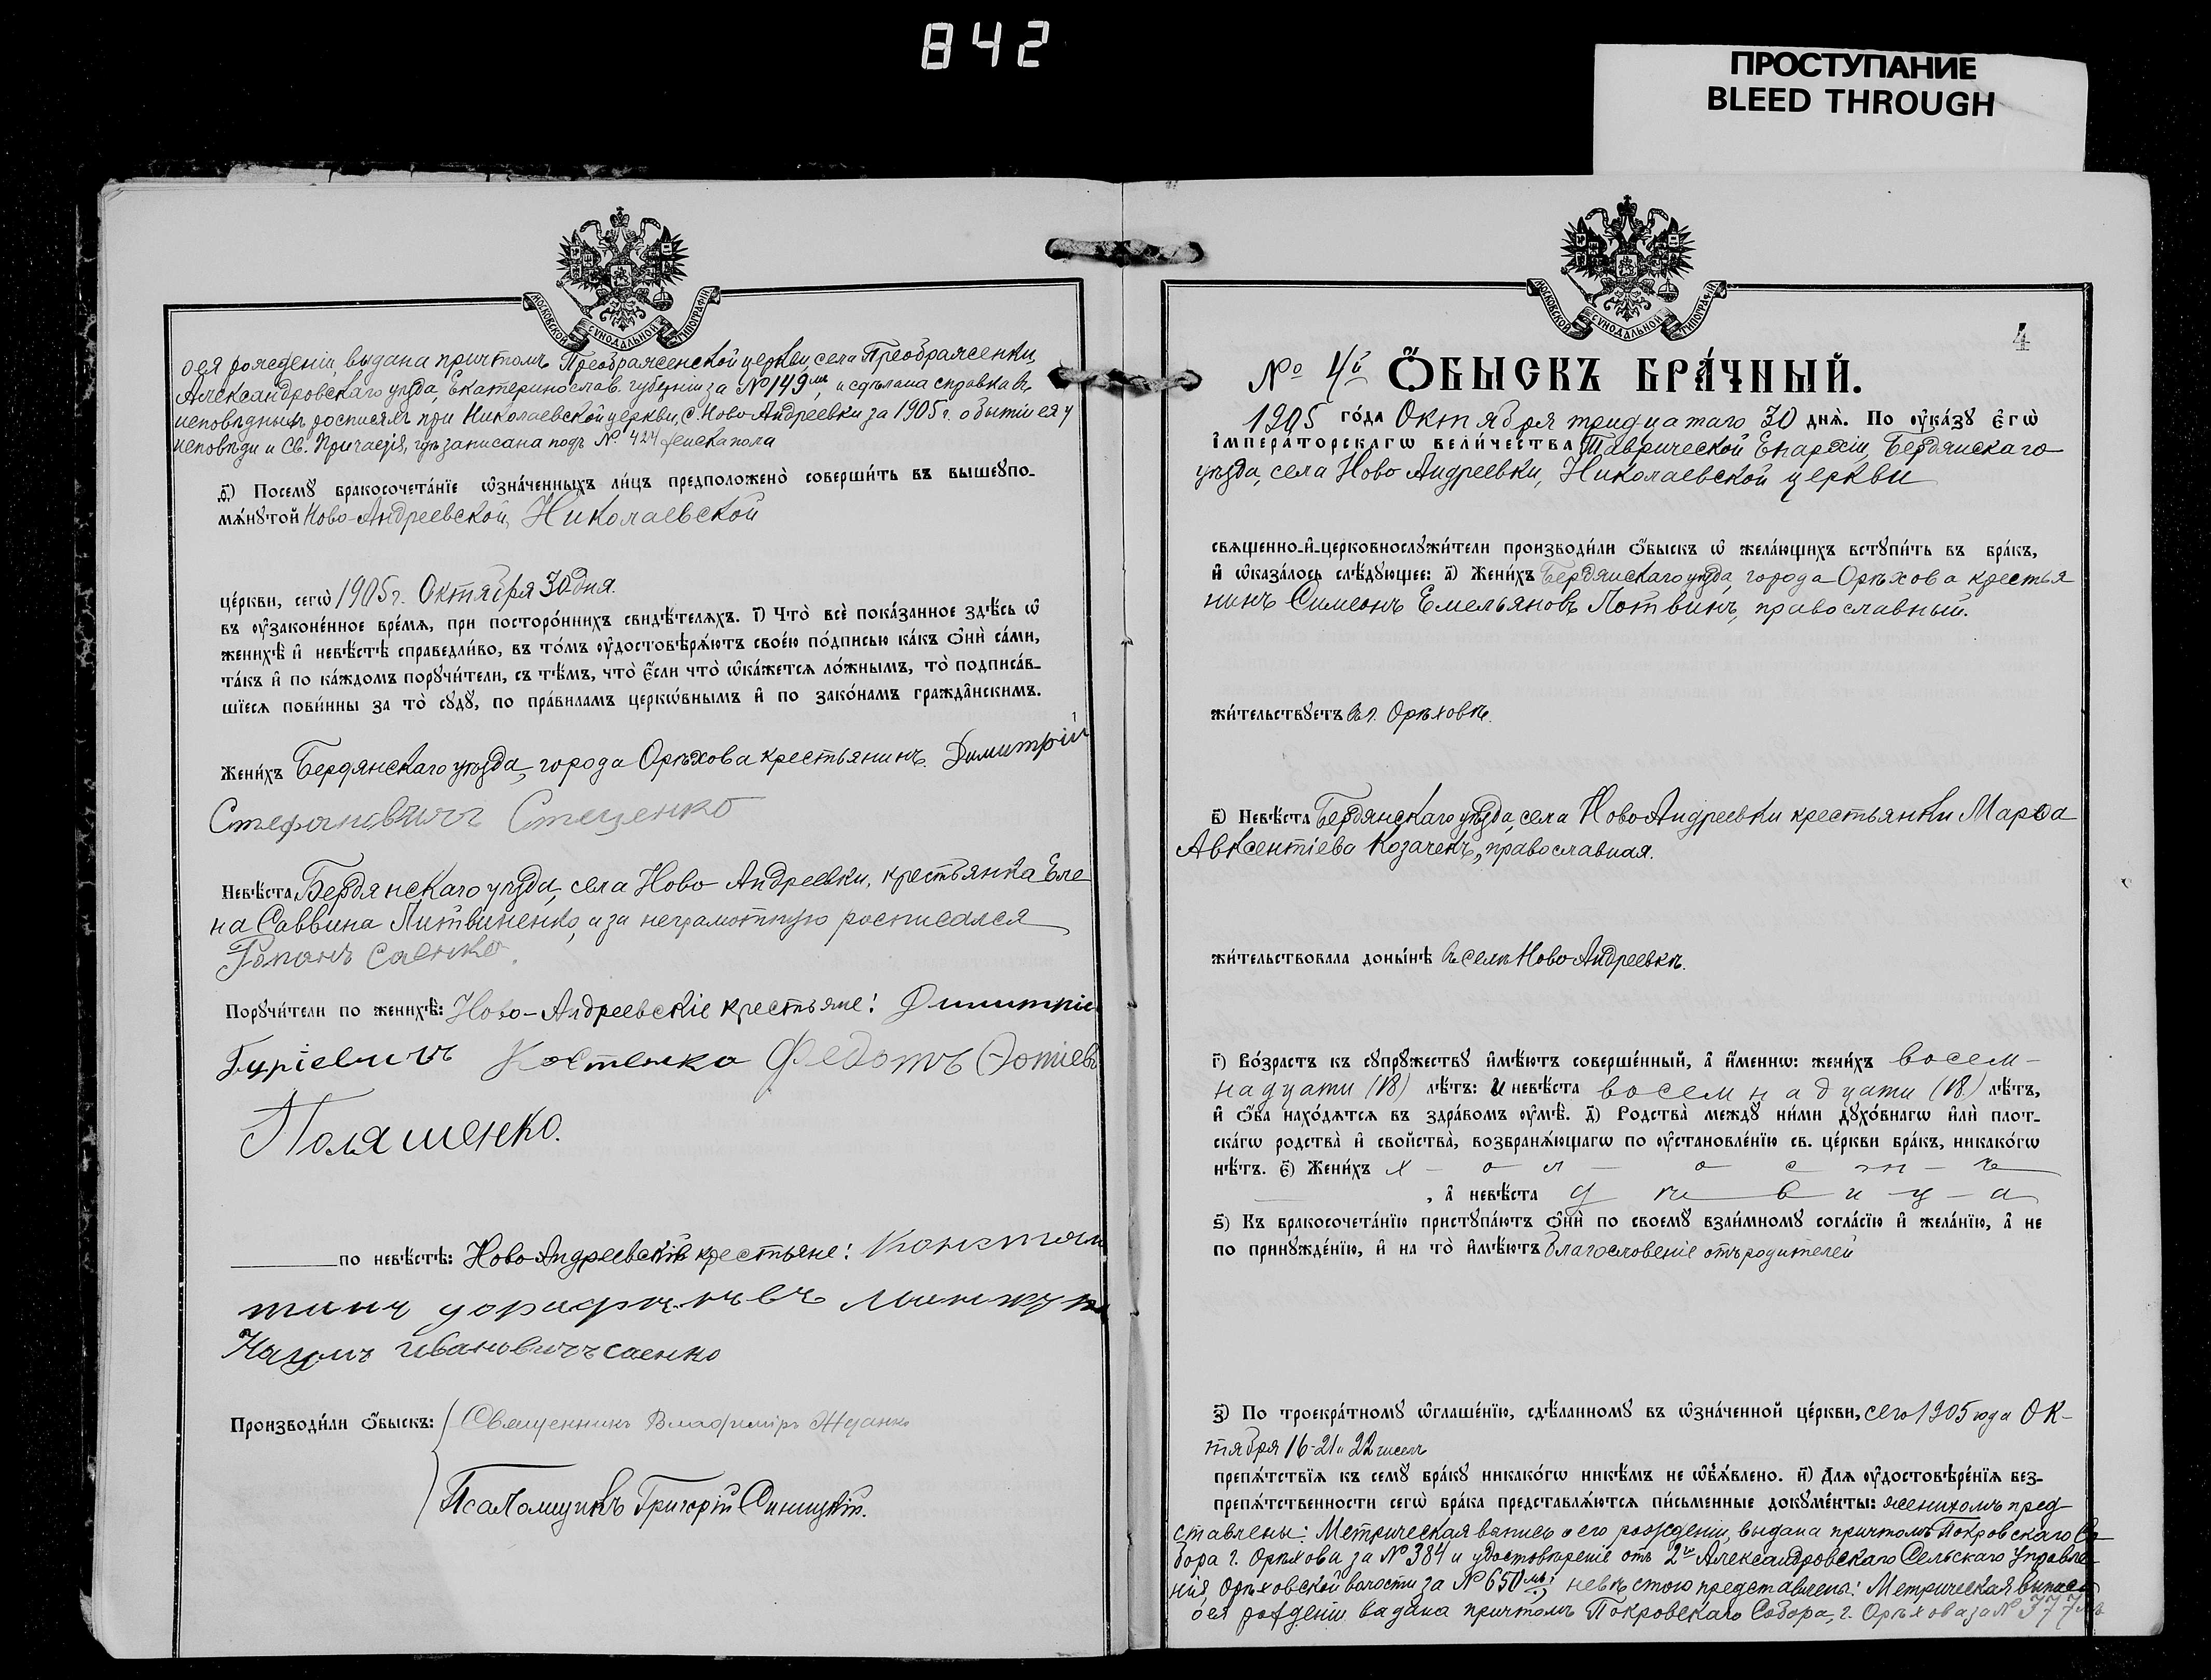 842
ПРОСТУПАНИЕ
BLEED THROUGH
МОСКОВСКОЙ СѴНОДАЛЬНОЙ ТИПОГРАФІИ
о ея рожденіи, выдана причтомъ Преображенской церкви, села Преображенки,
Александровскаго уѣзда, Екатеринослав. губерніи за № 149мъ, и сдѣлана справка въ
исповѣдныхъ росписяхъ при Николаевской церкви, с. Ново Андреевки за 1905 г. о бытіи ея у
исповѣди и Св. Причастія, гдѣ записана подъ № 424 женска пола
д҃) Посемꙋ бракосочета́нїе ѡ҆зна́ченныхъ ли́цъ предположено̀ соверши́ть въ вышеꙋпо-
мѧ́нꙋтой Ново-Андреевской, Николаевской
це́ркви, сегѡ̀ 1905 г. Октября 30 дня.
въ ᲂу҆законе́нное вре́мѧ, при посторо́ннихъ свидѣ́телѧхъ. і҃) Что̀ всѐ пока́занное здѣ́сь ѡ҆
женихѣ̀ и҆ невѣ́стѣ справедли́во, въ то́мъ ᲂу҆достовѣрѧ́ютъ свое́ю по́дписью ка́къ ѻ҆нѝ са́ми,
та́къ и҆ по ка́ждомъ порꙋчи́тели, съ тѣ́мъ, что̀ є҆́сли что̀ ѡ҆ка́жетсѧ ло́жнымъ, то̀ подписа́в-
шїесѧ пови́нны за то̀ сꙋдꙋ̀, по пра́виламъ церкѡ́внымъ и҆ по зако́намъ гражда́нскимъ.
Жени́хъ Бердянскаго уѣзда, города Орѣхова крестьянинъ Димитрій
Стефановичъ Стеценко
Невѣ́ста Бердянскаго уѣзда, села Ново Андреевки, крестьянка Еле
на Саввина Литвиненко, а за неграмотную росписался
Романъ Саенко
Порꙋчи́тели по женихѣ̀: Ново-Андреевскіе крестьяне: Димитріи
Гуріевичъ Костенко Федотъ Фотіевъ
Поляшенко.
по невѣ́стѣ: Ново Андреевскіе крестьяне: Констан
тинъ
Наумъ Ивановичъ Саенко
Производи́ли ѻ҆́быскъ: Священникъ Владиміръ Жданко
Псаломщикъ Григорій Синицкій.
МОСКОВСКОЙ СѴНОДАЛЬНОЙ ТИПОГРАФІИ
4
№ 4й Ѻ҆́БЫСКЪ БРА́ЧНЫЙ.
1905 го́да Октября тридцатаго 30 днѧ̀. По ᲂу҆ка́зꙋ є҆гѡ̀
і҆мпера́торскагѡ вели́чества Таврической Епархіи, Бердянскаго
уѣзда, села Ново Андреевки, Николаевской церкви
свѧщенно-и҆-церковнослꙋжи́тели производи́ли ѻ҆́быскъ ѡ҆ жела́ющихъ встꙋпи́ть въ бра́къ,
и҆ ѡ҆каза́лось слѣ́дꙋющее: а҃) Жени́хъ Бердянскаго уѣзда, города Орѣхова крестья
нинъ Симеонъ Емельяновъ Лотвинъ, православный.
жи́тельствꙋетъ въ г. Орѣховѣ.
в҃) Невѣ́ста Бердянскаго уѣзда, села Ново Андреевки крестьянки Марѳа
Авксентіева Козаченъ, православная.
жи́тельствовала доны́нѣ въ селѣ Ново Андреевкѣ.
г҃) Во́зрастъ къ сꙋпрꙋ́жествꙋ и҆мѣ́ютъ соверше́нный, а҆ и҆́менно: жени́хъ восем-
надцати (18) лѣ́тъ: и невѣ́ста восемнадцати (18) лѣ́тъ,
и҆ ѻ҆́ба нахо́дѧтсѧ въ здра́вомъ ᲂу҆мѣ̀. д҃) Родства̀ междꙋ ни́ми дꙋхо́внагѡ и҆лѝ плот-
ска́гѡ родства̀ и҆ сво́йства, возбранѧ́ющагѡ по ᲂу҆становле́нїю св. це́ркви бра́къ, никако́гѡ
нѣ́тъ. є҃) Жени́хъ х-ол-ост-ъ
, а҆ невѣ́ста дѣвица
ѕ҃) Къ бракосочета́нїю пристꙋпа́ютъ ѻ҆нѝ по своемꙋ̀ взаи́мномꙋ согла́сїю и҆ жела́нїю, а҆ не
по принꙋжде́нїю, и҆ на то̀ и҆мѣ́ютъ благословеніе отъ родителей
з҃) По троекра́тномꙋ ѡ҆глаше́нїю, сдѣ́ланномꙋ въ ѡ҆зна́ченной це́ркви, сего 1905 года Ок-
тября 16-21 и 22 чиселъ
препѧ́тствїѧ къ семꙋ̀ бра́кꙋ никако́гѡ никѣ́мъ не ѡ҆б̾ѧ́влено. и҃) Длѧ ᲂу҆достовѣре́нїѧ без-
препѧ́тственности сегѡ̀ бра́ка представлѧ́ютсѧ пи́сьменные докꙋме́нты: женихомъ пред-
ставлены: Метрическая выпись о его рожденіи, выдана причтомъ Покровскаго Со-
бора г. Орѣхова за № 384 и удостовѣреніе отъ 2го Александровскаго Сельскаго Управле-
нія, Орѣховской волости за № 650мъ; невѣстою представлены: Метрическая выпись
о ея рожденіи выдана причтомъ Покровскаго Собора, г. Орѣхова за № 377мъ